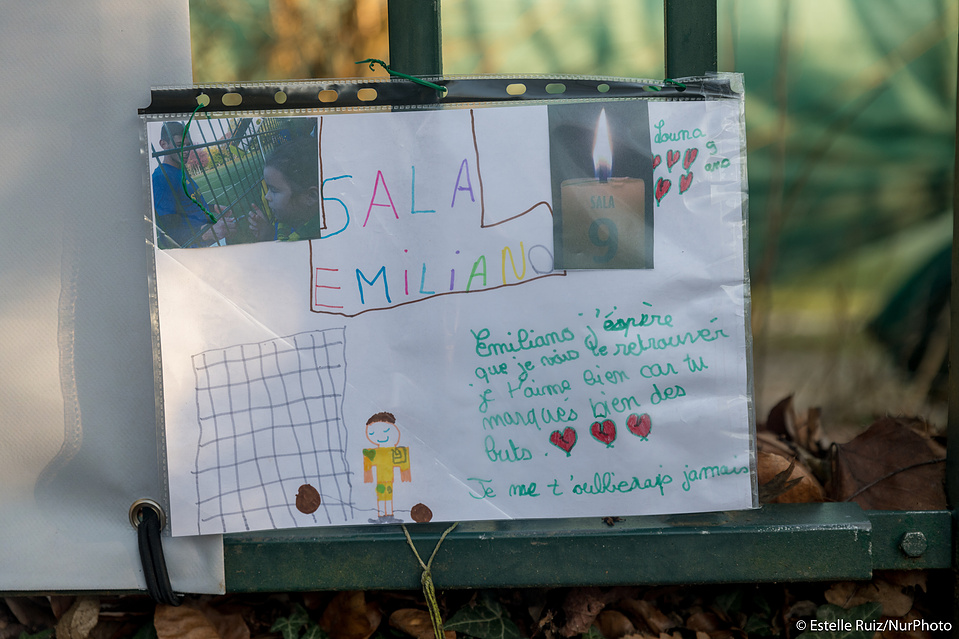 SALA
EMiLiANO
SALA
9
Louna
9
ans
Emiliano j'éspère
que je vais te retrouver
je t'aime bien car tu
marqués bien des
buts.
Je me t'oulbierais jamais
© Estelle Ruiz/NurPhoto